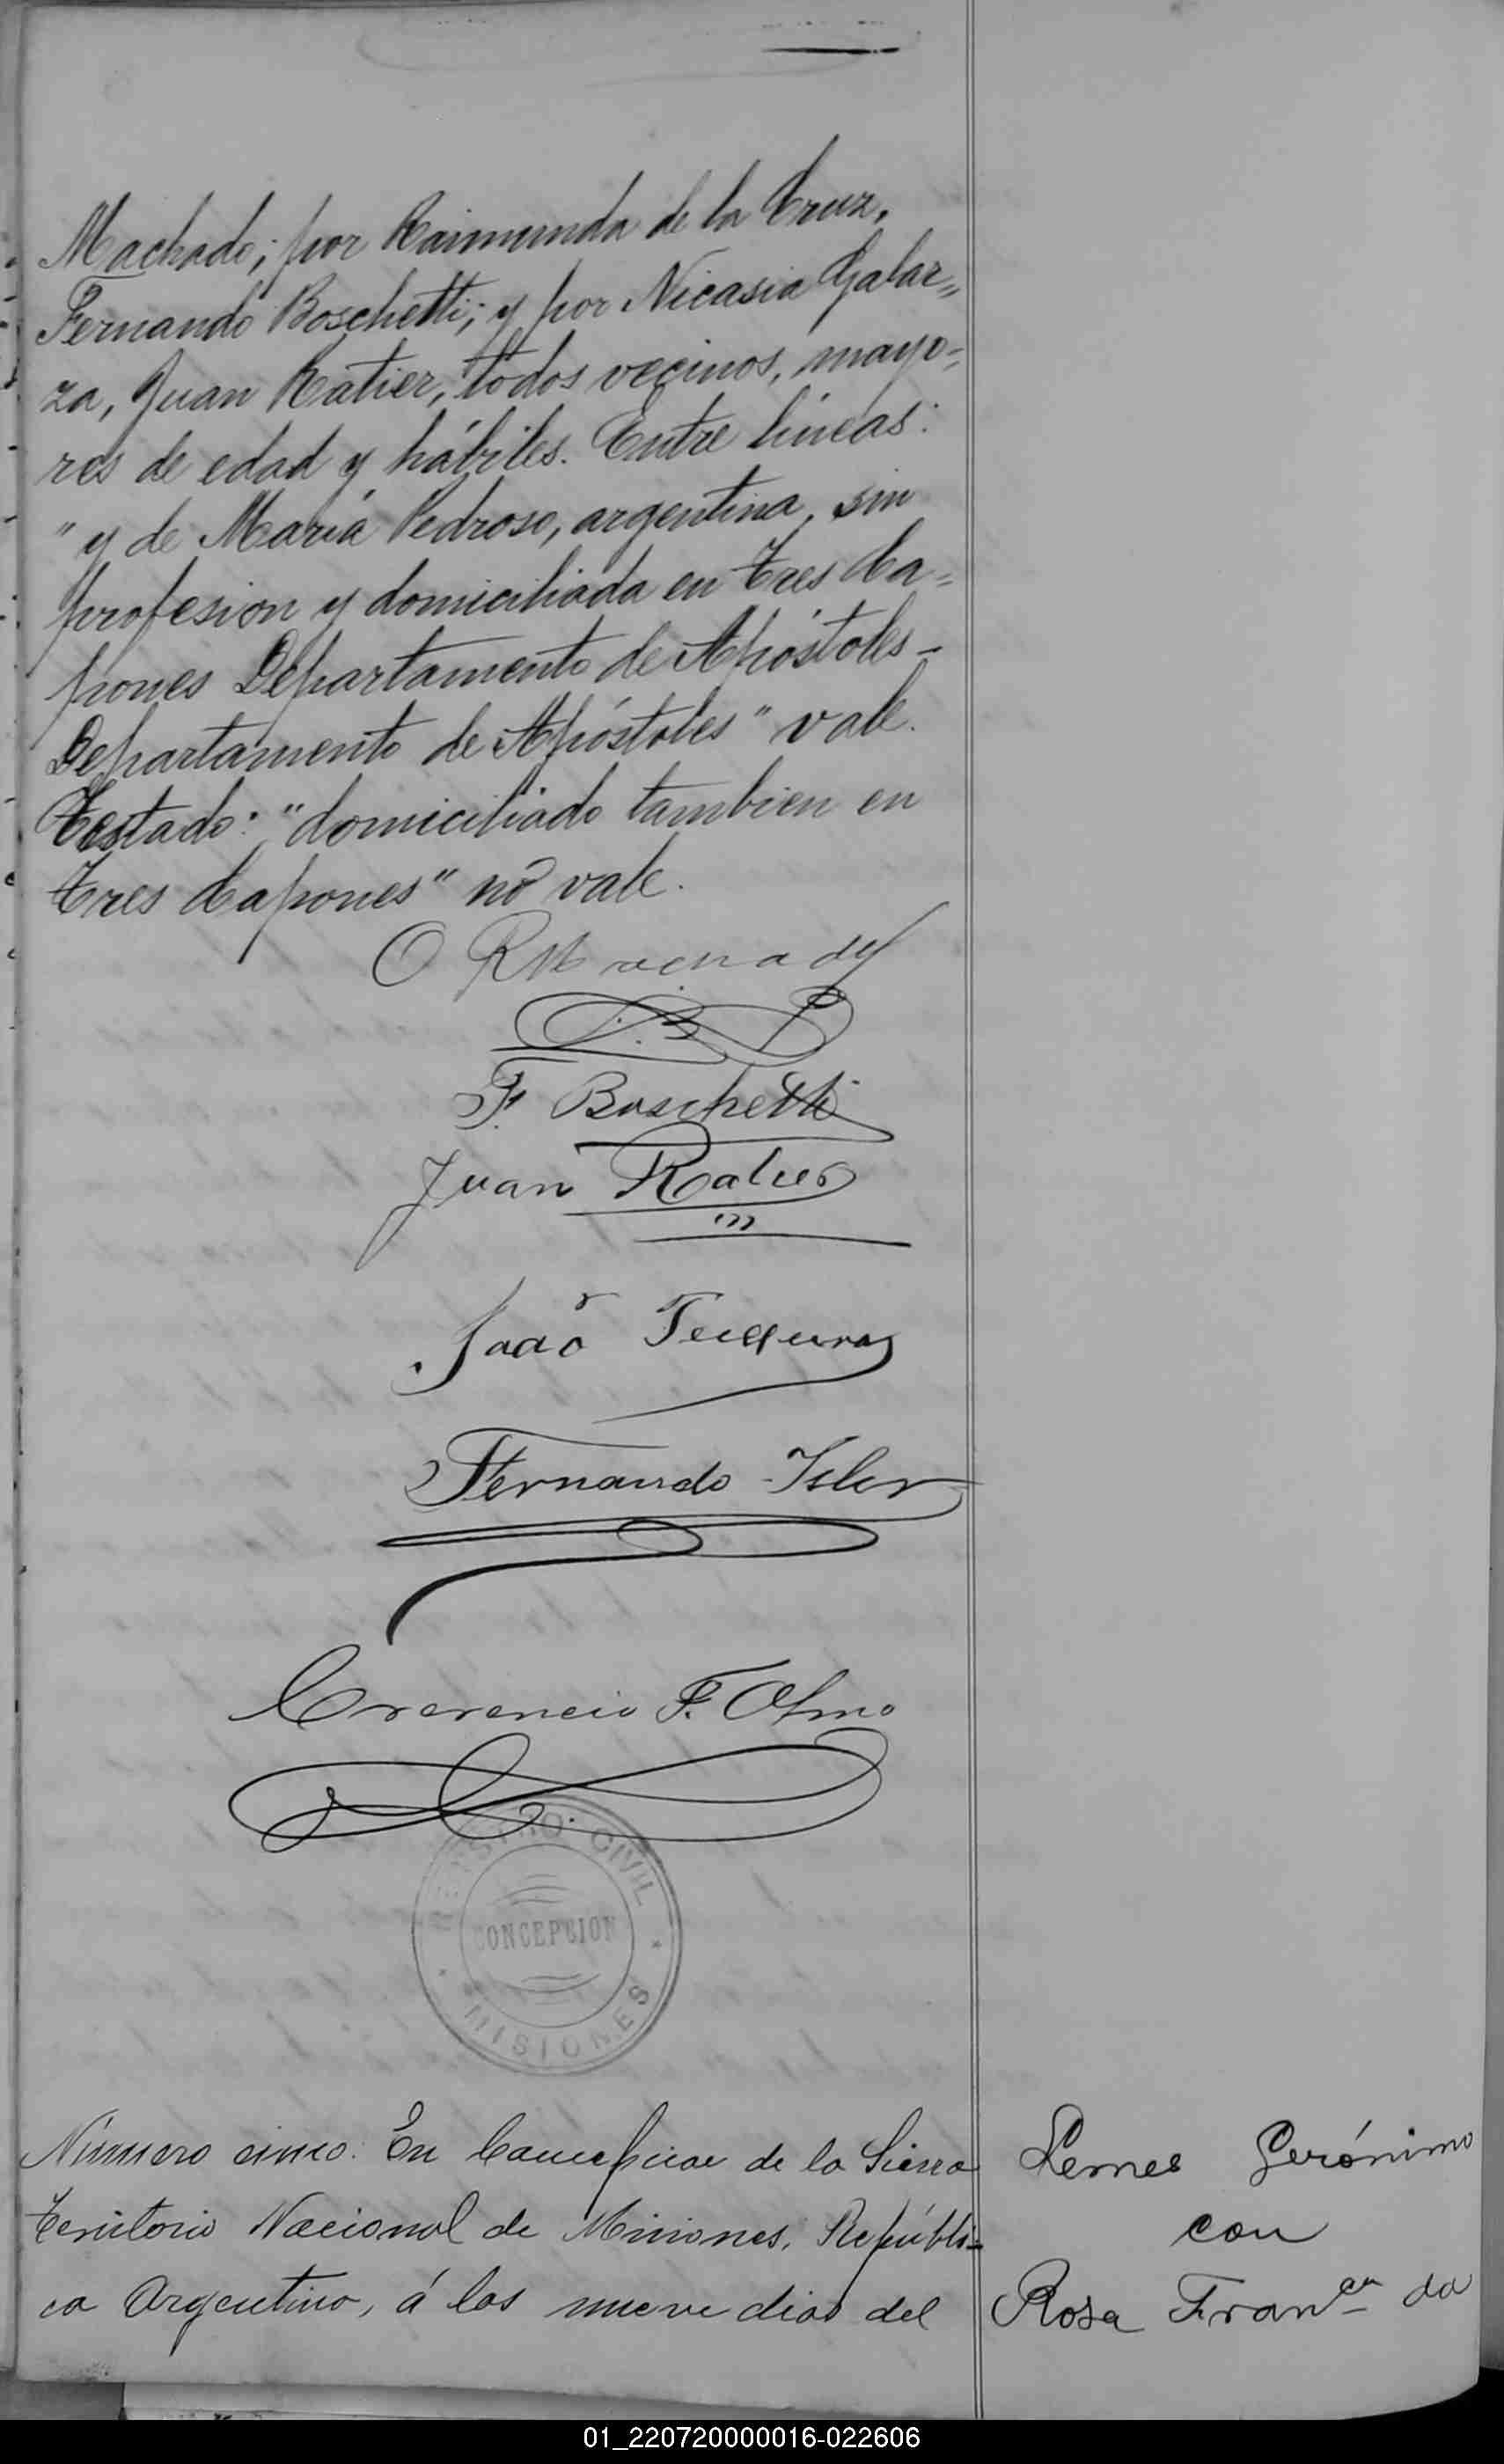 Machado; por Raimunda de la Cruz,
Fernando Boschetti; y por Nicasia Galar=
za, Juan Ratier, todos vecinos, mayo=
res de edad y hábiles. Entre líneas:
" y de María Pedroso, argentina, sin
profesion y domiciliada en Tres Ca=
pones Departamento de Apóstoles -
Departamento de Apóstoles" vale.
Testado: "domiciliado tambien en
Tres Capones" no vale.
F. Boschetti
Juan Ratier
Fernando Isler
F. Olmo
REGISTRO CIVIL
CONCEPCION
MISIONES
Número cinco: En Concepcion de la Sierra
Territorio Nacional de Misiones, Repúbli=
ca Argentina, á los nueve dias del
Lemes Gerónimo
con
Rosa Fran^ca da
01_220720000016-022606